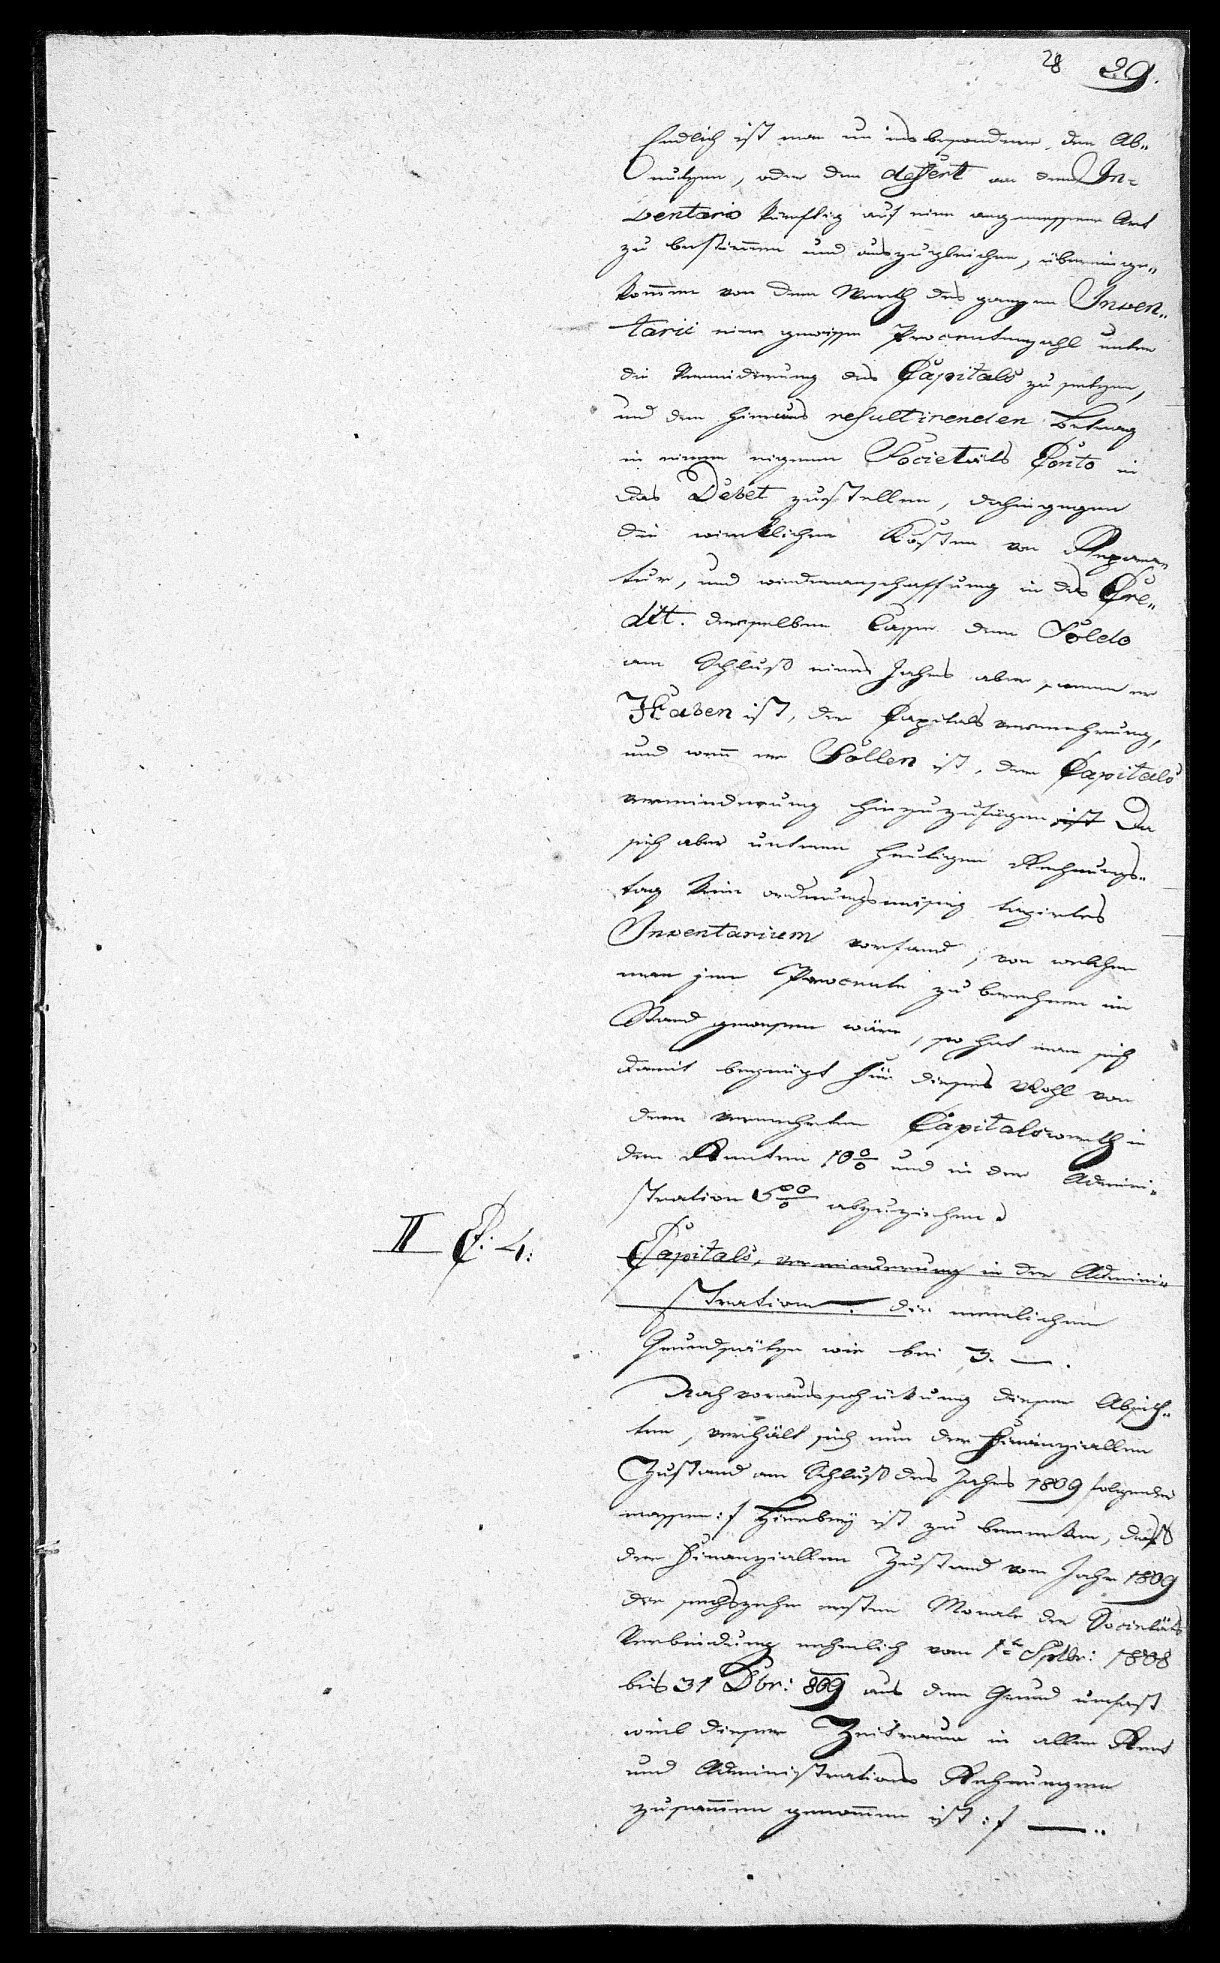 28 29.
Endlich ist man um insbesondere den Ab„
nutzen, oder den defect an dem In„
ventario künftig auf eine angemessene Art
zu bestimmen und auszugleichen, übereinge„
kommen von dem Werth des ganzen Inven„
tarii eine gewisse Procentenzahl unter
die Verminderung des Capitals zu setzen,
und den hieraus resultirenden Betrag
in einem eigenen Societäts Conto in
das Debet zustellen, dahingegen
die wirklichen Kosten von Repara„
tur, und wiederanschaffung in das Cre„
dit. derselben Casse dem Soldo
am Schluß eines Jahres aber, wenn er
Haben ist, der Capitals vermehrung,
und wenn er Sollen ist, der Capitals
verminderung hinzuzufügen ist Da
sich aber unterm heutigen Rechnungs„
tag kein ordnungsmäsig taxirtes
Inventarium vorfand, von welchem
man jene Procente zu berechnen im
Stand gewesen wäre, so hat man sich
damit begnügt für dieses Mohl von
dem vermehrten Capitalswerth in
den Renten 10 % und in der Admini„
stration 5 % abzuziehen.
II C: 4:
Capitals, verminderung in der Admini„
stration. die nemlichen
Grundsätze wie bei 3. —.
Nach vorausschickung dieser Absich„
ten, verhält sich nun der Finanziellen
Zustand am Schluß des Jahrs 1809 folgender
massen :/ Hierbey ist zu bemerken, daß
der Finanziellen Zustand vom Jahr 1809
die sechszehn ersten Monate der Societäts
Verbindung nehmlich vom 1t Sptbr: 1808
bis 31 Dbr: 809 aus dem Grund umfast
weil dieser Zeitraum in allen Rent
und Administrations Rechnungen
zusammen genommen ist :/ —..